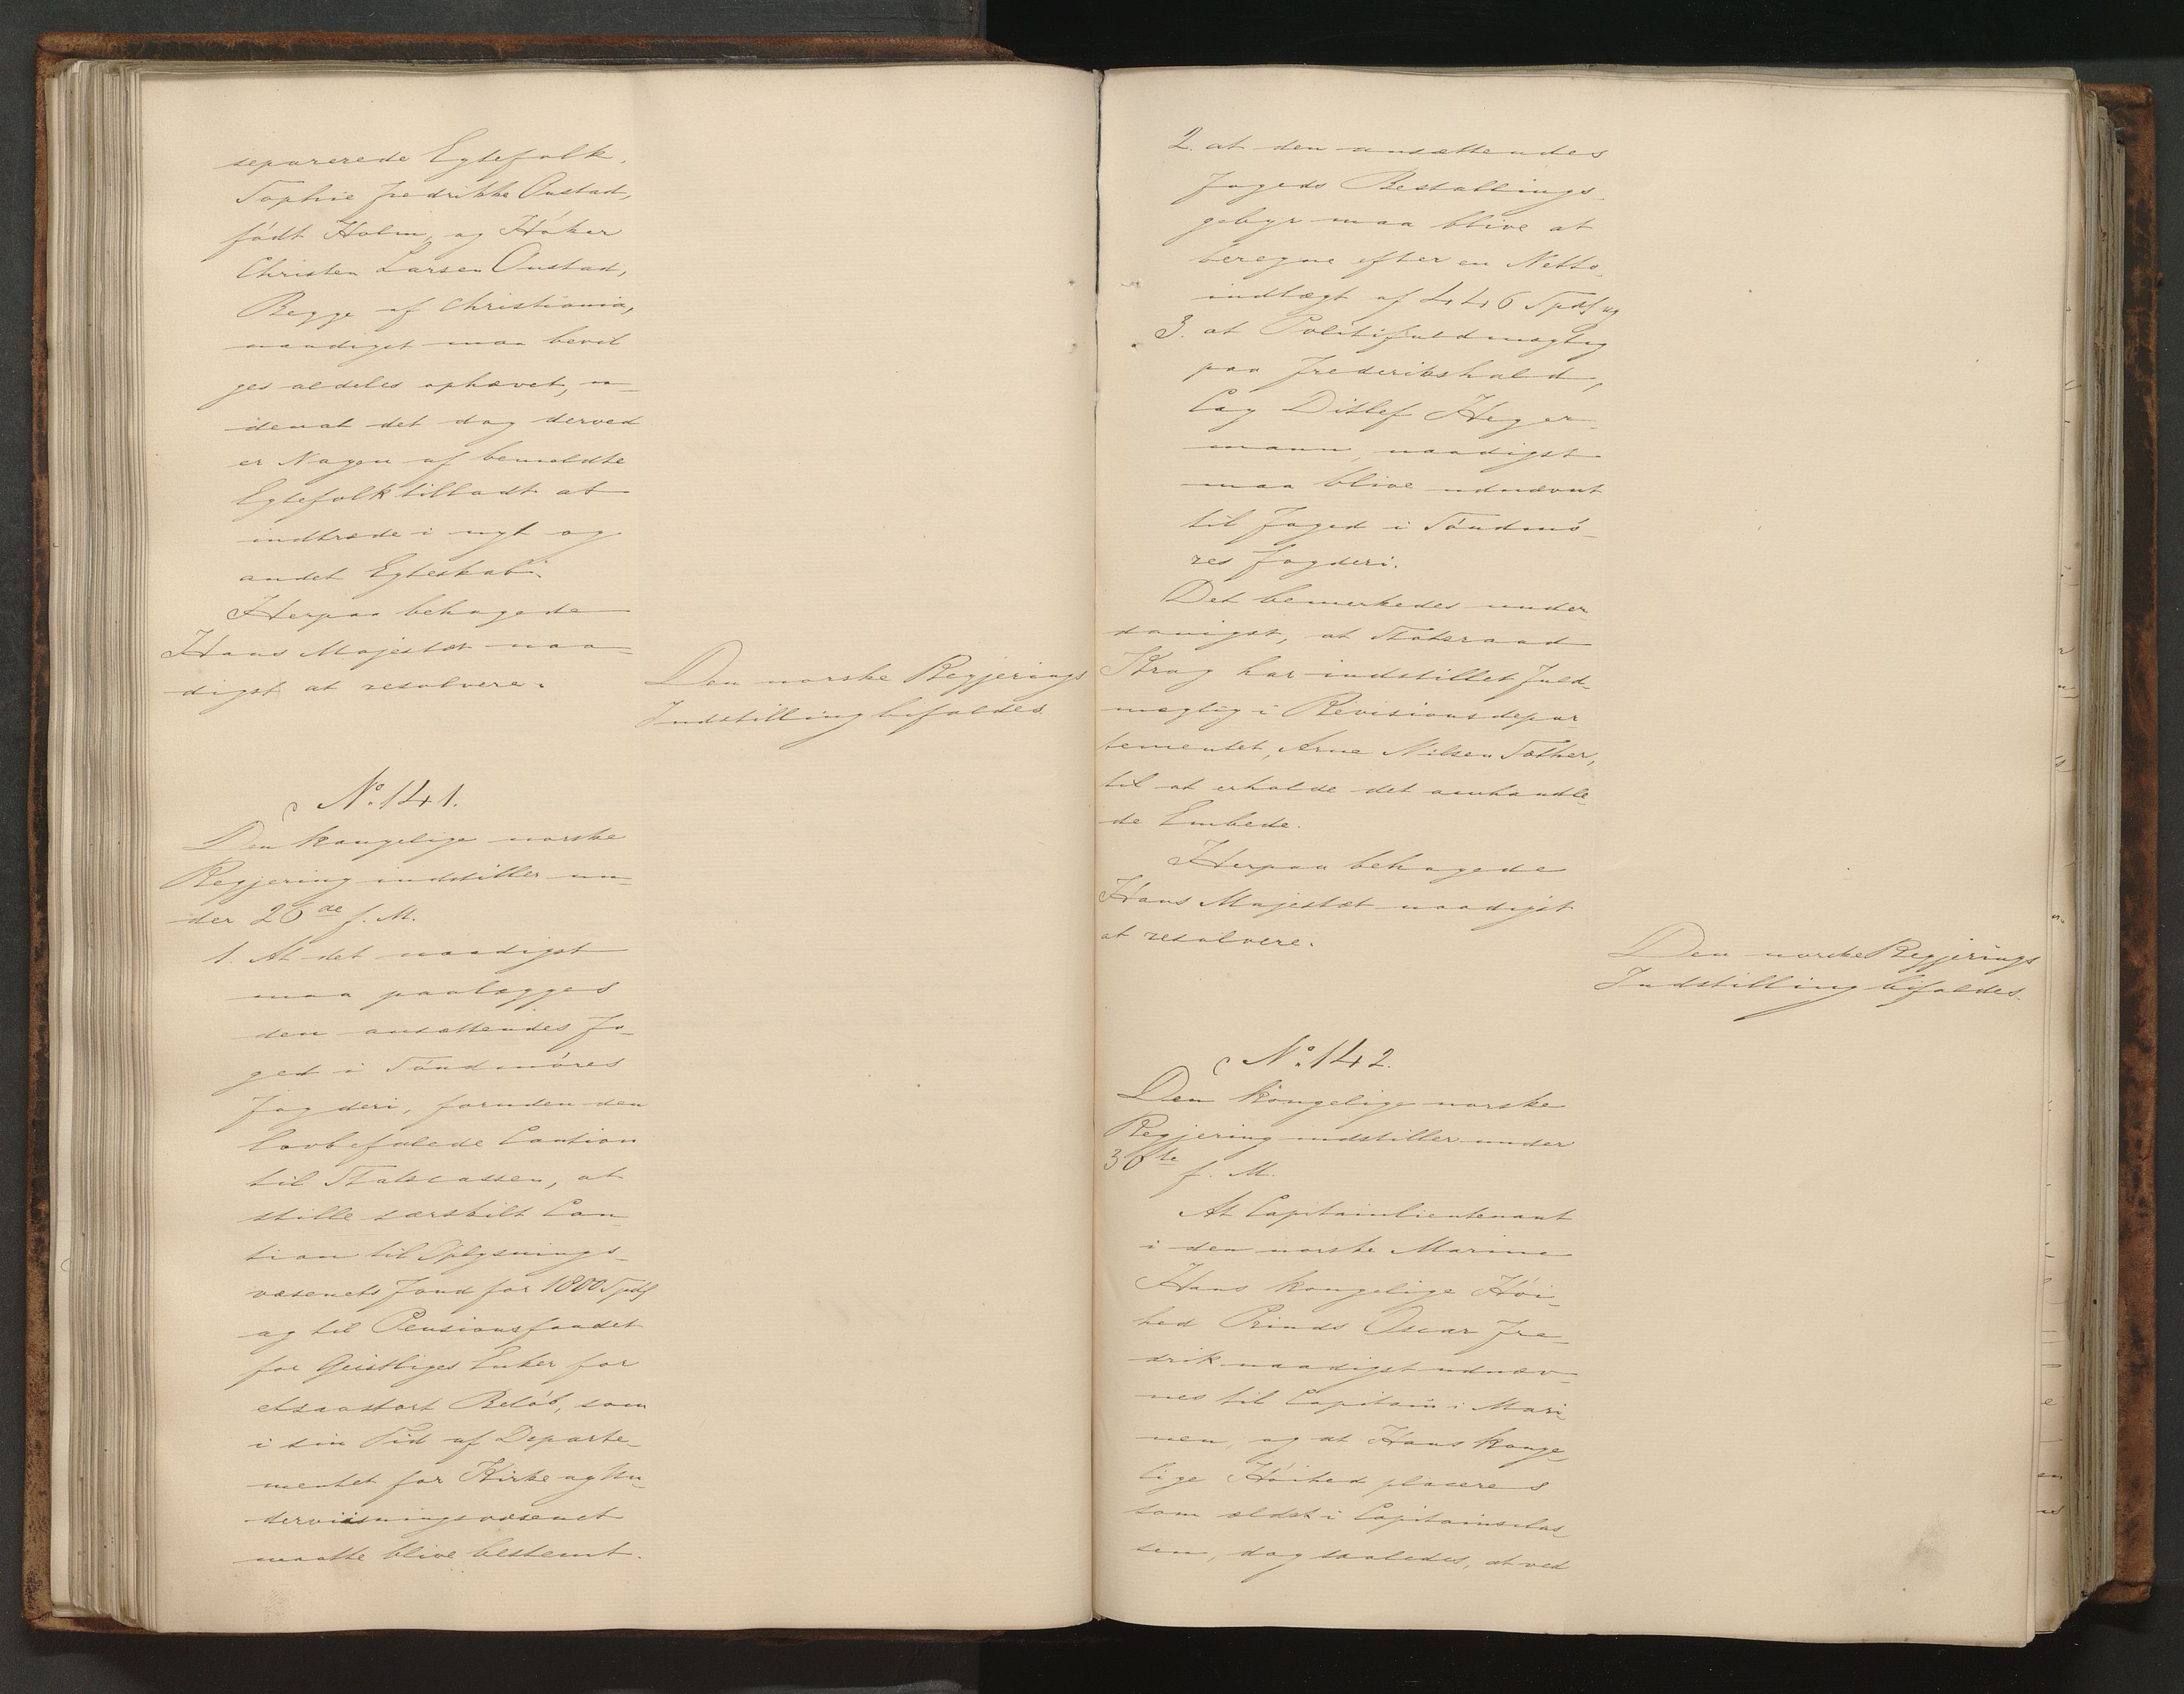 separerede Egtefolk,
Sophie Fredrikke Onstad,
født Holm, og Høker
Christen Larsen Onstad,
Begge af Christiania,
naadigst maa bevil
ges aldeles ophævet, u-
denat det dog derved
er Nogen af bemeldte
Egtefolk tilladt at
indtræde i nyt og
andet Egteskab.
Herpaa behagede
Hans Majestæt naa-
digst at resolvere:
Den norske Regjerings
Indstilling bifaldes.
No. 141.
Den kongelige norske
Regjering indstiller un-
der 26de f. M.
1. At det naadigst
maa paalægges
den ansættendes Fo-
ged i Søndmøres
Fogderi, foruden den
lovbefalede Caution
til Statscassen, at
stille særskilt Cau-
tion til Oplysnings-
væsenets Fond for 1800 Spdlr
og til Pensionsfondet
for Geistliges Enker for
etsaastort Beløb, som
i sin Tid af Departe-
mentet for Kirke og Un-
derviisningsvæsenet
maatte blive bestemt.
2. at den ansættendes
Fogeds Bestallings-
gebyr maa blive at
beregne efter en Netto-
indtægt af 446 Spdlr og
3. at Politifuldmægtig
paa Frederikshald,
Cay Ditlef Heger-
mann, naadigst
maa blive udnævnt
til Foged i Søndmø-
res Fogderi.
Det bemerkedes under-
danigst, at Statsraad
Krog har indstillet Fuld-
mægtig i Revisionsdepar
tementet, Arne Nilsen Sæther,
til at erholde det omhandle-
de Embede.
Herpaa behagede
Hans Majestæt naadigst
at resolvere:
Den norske Regjerings
Indstilling bifaldes.
No. 142.
Den kongelige norske
Regjering indstiller under
30te f. M.
At Capitainlieutenant
i den norske Marine
Hans kongelige Høi-
hed Prinds Oscar Fre-
drik naadigst udnæv-
nes til Capitain i Mari-
nen, og at Hans konge-
lige Høihed placeres
som ældst i Capitainsclas-
sen, dog saaledes, at ved